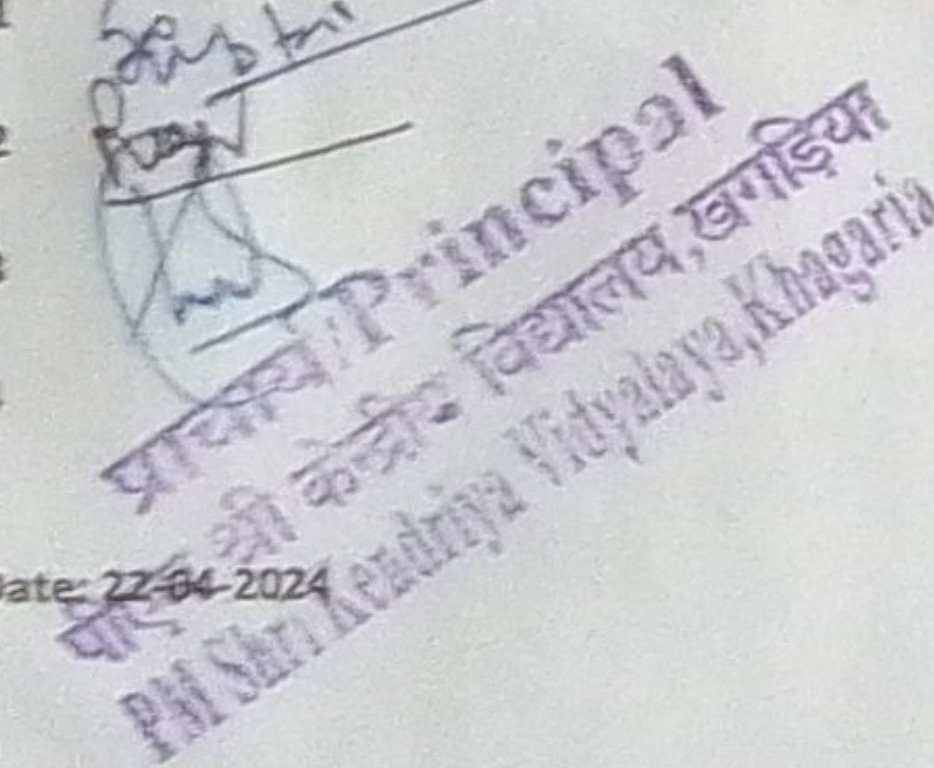 प्राचार्य/Principal
पीएम श्री केन्द्रीय विद्यालय,खगड़िया
PM Shri Kendriya Vidyalaya,Khagaria
Date: 22-04-2024